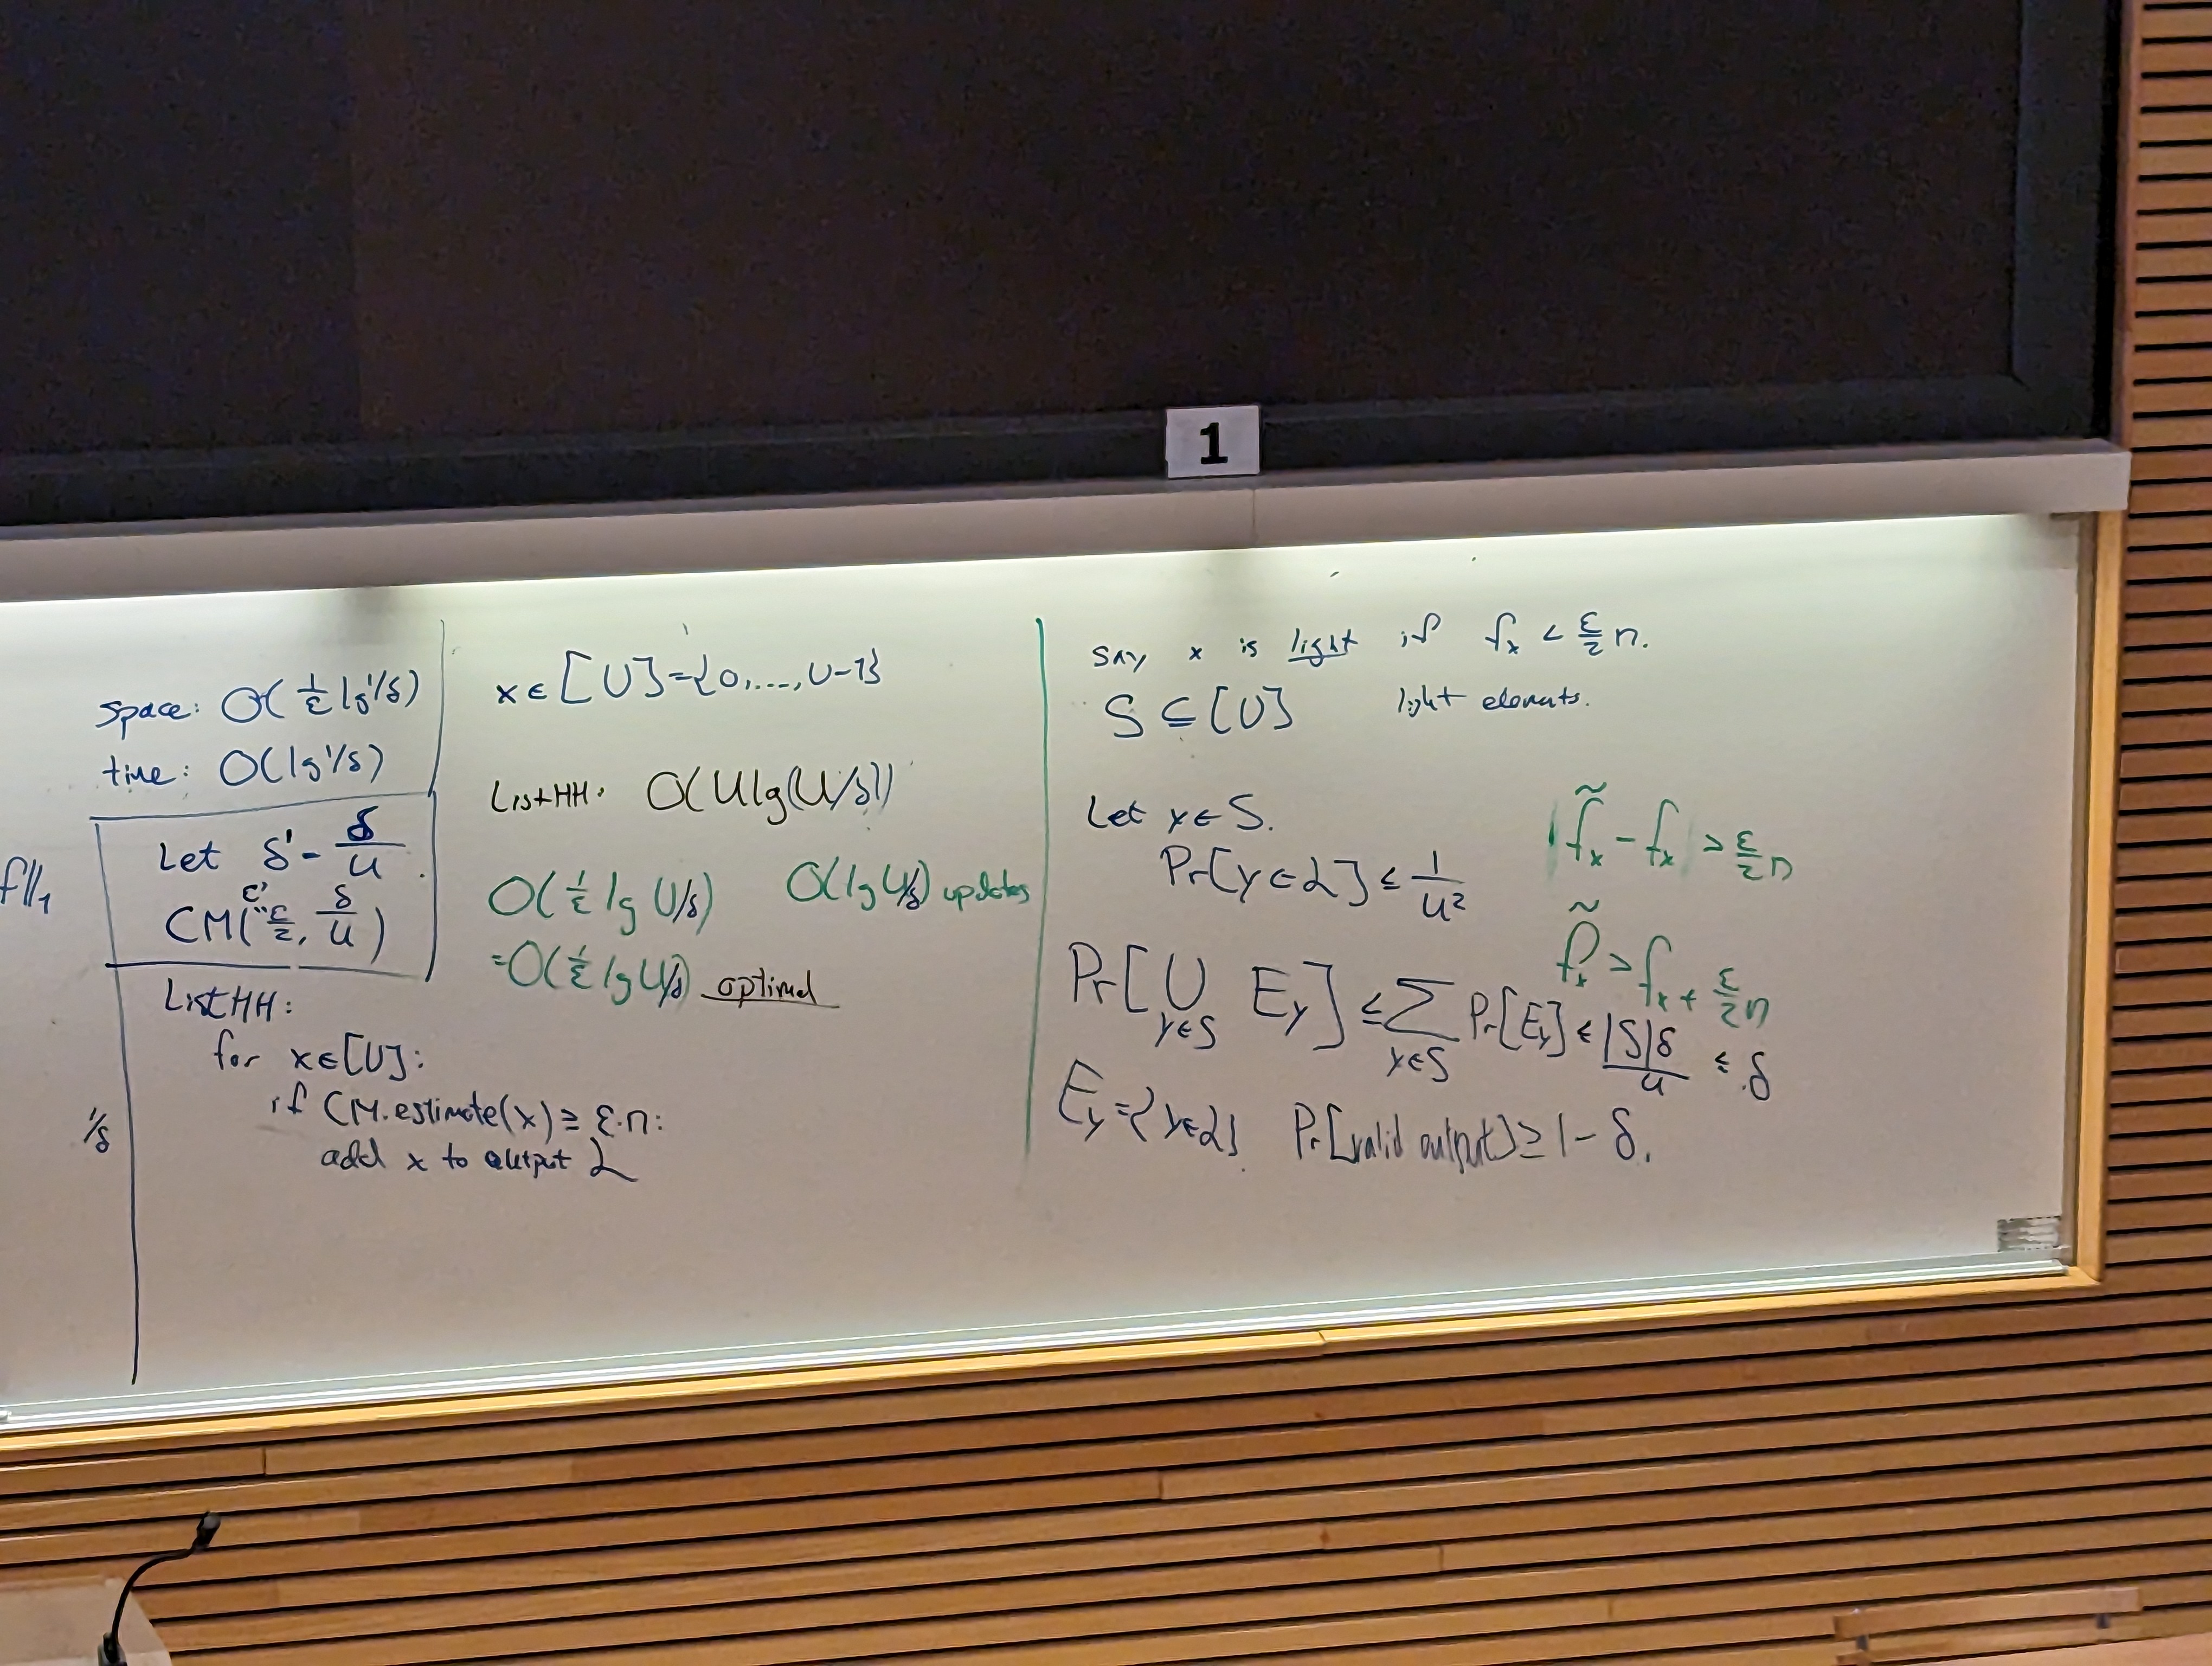 1
f||₁
1/δ
space: O(1/ε lg 1/δ)
time: O(lg 1/δ)
Let δ' - δ/U.
ε'
CM("ε/2, δ/U)
ListHH:
for x∈[U]:
if CM.estimate(x) ≥ ε·n:
add x to output L
x∈[U]={0,...,U-1}
ListHH: O(U lg(U/δ))
O(1/ε lg U/δ) O(lg U/δ) updates
=O(1/ε lg U/δ) optimal
Say x is light if f_x < ε/2 n.
S ⊆ [U] light elements.
Let y∈S.
Pr[y∈L] ≤ 1/U²
|f̃_x - f_x| > ε/2 n
f̃_x > f_x + ε/2 n
Pr[∪_{y∈S} E_y] ≤ Σ_{y∈S} Pr[E_y] ≤ |S|δ/U ≤ δ
E_y={y∈L}. Pr[valid output] ≥ 1-δ.